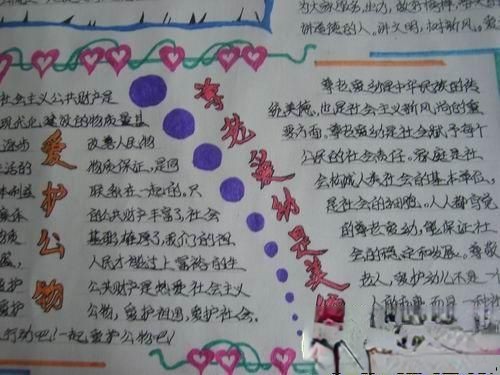 社会主义公共财产是
现代化建设的物质基
逐步 改善人民物
生活的 物质保证,是同
联系在一起的。只
的公共财产丰富了,社会
基础雄厚了,我们的祖
人民才能过上富裕的生
公共财产是热爱社会主义
公物,爱护祖国,爱护社会。
行动吧!一起爱护公物吧!
爱护公物
尊老爱幼是美
尊老爱幼是中华民族的传
统美德,也是社会主义新风尚的重
要方面,尊老爱幼是社会赋予每个
公民的社会责任。家庭是社
会构成人类社会的基本单位,
是社会的细胞。人人都自觉
的尊老爱幼,能保证社
会的稳定和发展。尊敬
老人,爱护幼儿不是一
讲道德的人。讲文明,树新风。